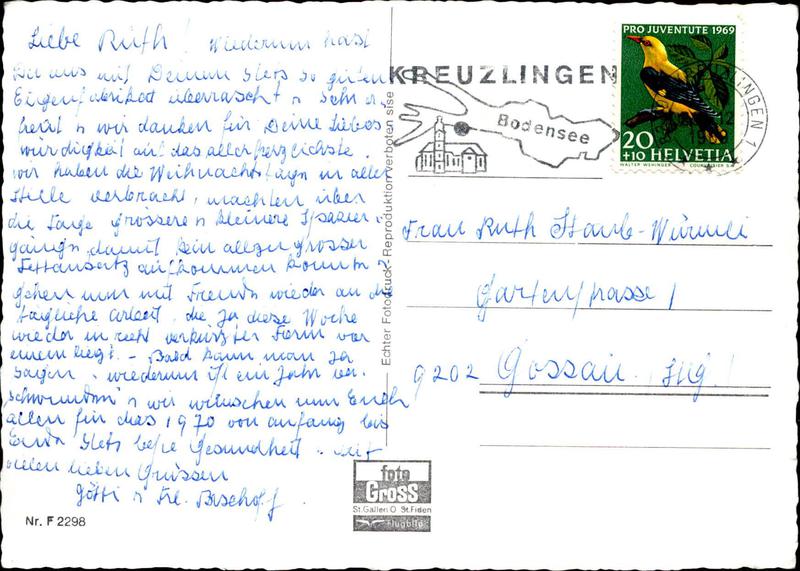 Liebe Ruth! Wiederum hast
Du uns mit Deinem stets so guten
Eigenfabrikat überrascht u sehr er-
freut u wir danken für Deine Liebens
würdigkeit auf das allerherzlichste.
Wir haben die Weihnachtstage in aller
Stille verbracht, machten über
die Tage grössere u kleinere Spazier-
gänge, damit kein allzu grosser
Fettansatz aufkommen konnte u
gehen nun mit Freude wieder an die
tägliche Arbeit, die ja diese Woche
wieder in recht verkürzter Form vor
einem liegt. - Bald kann man ja
sagen, wiederum ist ein Jahr ver-
schwunden u wir wünschen nun Euch
allen für das 1970 von anfang bis
Ende stets beste Gesundheit. Mit
vielen lieben Grüssen
Götti u Frl. Bischoff
Nr. F 2298
Echter Fotodruck - Reproduktion verboten
foto
Gross
St.Gallen O St.Fiden
Flugbild
KREUZLINGEN
Bodensee
PRO JUVENTUTE 1969
20
+10 HELVETIA
COURVOISIER S.A.
Frau Ruth Staub-Würmli
Gartenstrasse 1
9202 Gossau, /Sg!